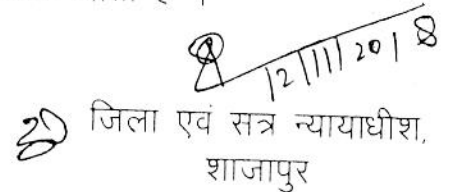 12/11/2018
जिला एवं सत्र न्यायाधीश,
शाजापुर